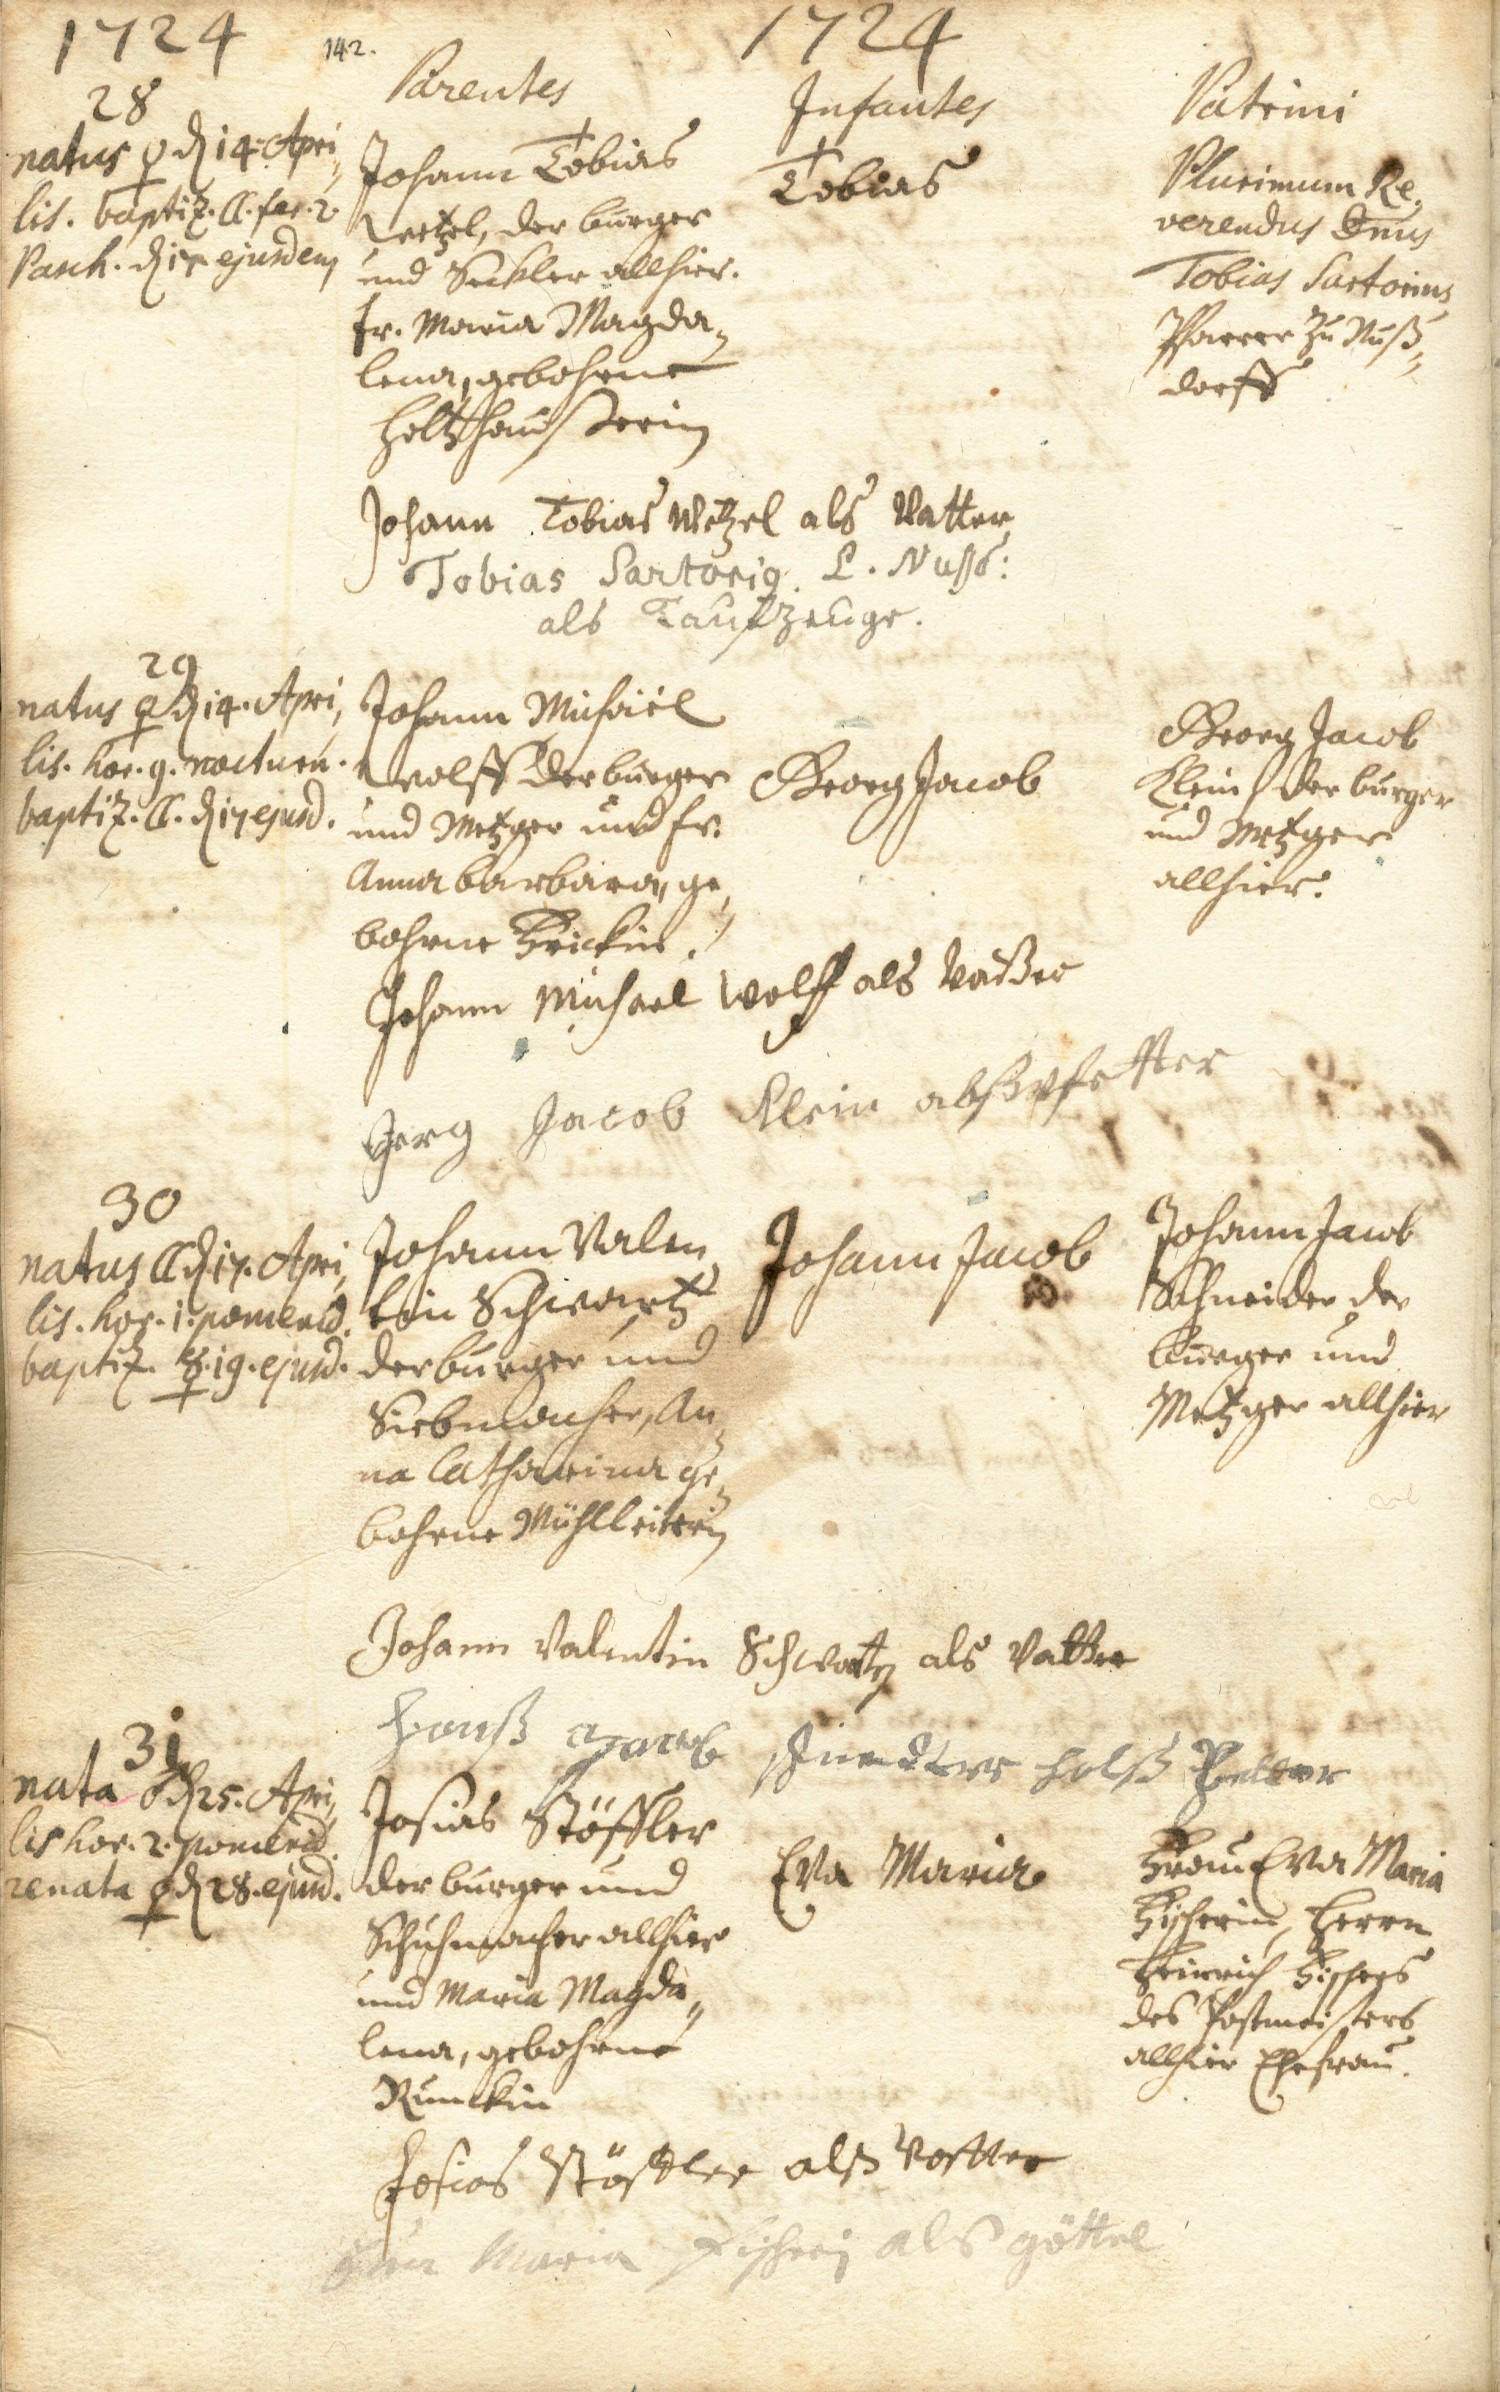 1724 142. 1724
Parentes Infantes Patrini
28
natus ♀ d. 14. Apri,
lis. baptiz. ☾. fer. 2.
Pasch. d. 17. ejusdem
Johann Tobias
Wetzel, der burger
und Seckler allhier.
fr. Maria Magda,
lena, gebohrne
Holtzhaußerin
Tobias
Plurimum Re,
verendus Dnus
Tobias Sartorius
Pfarrer zu Nuß,
dorff
Johann Tobias Wetzel als Vatter
Tobias Sartorig. P. Nussd:
als Taufzeuge.
29
natus ♀ d. 14. Apri,
lis. hor. 9. nocturn.
baptiz. ☾. d. 17 ejusd.
Johann Michaël
Wolff der burger
und Metzger und fr.
Anna barbara, ge,
bohrne
Georg Jacob
Georg Jacob
Klein der burger
und Metzger
allhier.
Johann Michael Wolff als Vatter
Gerg Jacob Klein alß pfetter
30
natus ☾ d. 17. Apri,
lis. hor. 1. pomerid.
baptiz. ☿. 19. ejusd.
Johann Valen,
tin Schwartz
der burger und
Siebmacher, An,
na Catharina ge,
bohrne Mühlleiterin
Johann Jacob
Johann Jacob
Schneider der
burger und
Metzger allhier
Johann Valentin Schwartz als Vatter
Hanß Jacob
31
nata ♂ d. 25. Apri,
lis hor. 2. pomerid.
renata ♀ d. 28. ejusd.
Josias Stöffler
der burger und
Schuhmacher allhier
und Maria Magda,
lena, gebohrne
Runckin
Eva Maria
Frau Eva Maria
Fischerin, Herrn
Heinrich Fischers
des Postmeisters
allhier Ehefrau.
Josias Stöffler alß Vatter
Maria Fischerin als göttel